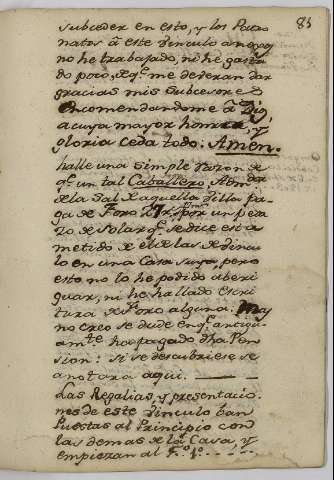 85
subceder en esto, y los Patro
natos â este Vinculo anexos
no he trabajado, ni he gasta
do poco, xq.e me deveran dar
gracias mis Subcesores
Encomendandome â Dios
a cuya mayor honrra, y
gloria ceda todo: Amen.
halle una simple razon de
q.e un tal Caballero, Adm.dor
de la Sal de aquella Villa pa-
ga de foro por un peda
zo de Solar q.e se dice està
metido de el de las de Vincu
lo en una Casa suya, pero
esto no lo he podido aberi
guar, ni he hallado escri
tura de foro alguna. Muy
no creo se dude en q.e antigu
am.te ha pagado dha Pen
sion: si se descubriese se
anotara aqui.
Las Regalias, y presentacio
nes de este Vinculo ban
Puestas al Principio con
las demas de la Casa, y
empiezan al f.o 1.o